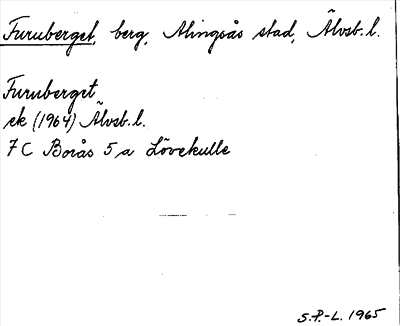 Furuberget, berg, Alingsås stad, Älvsb. l.
Furuberget
ek (1964) Älvsb. l.
7 C Borås 5 a Lövekulle
S.P.-L. 1965